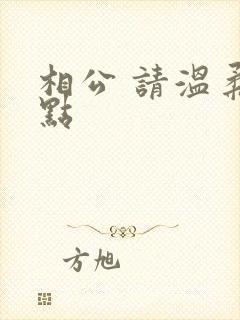 相公 請溫柔
點
方旭